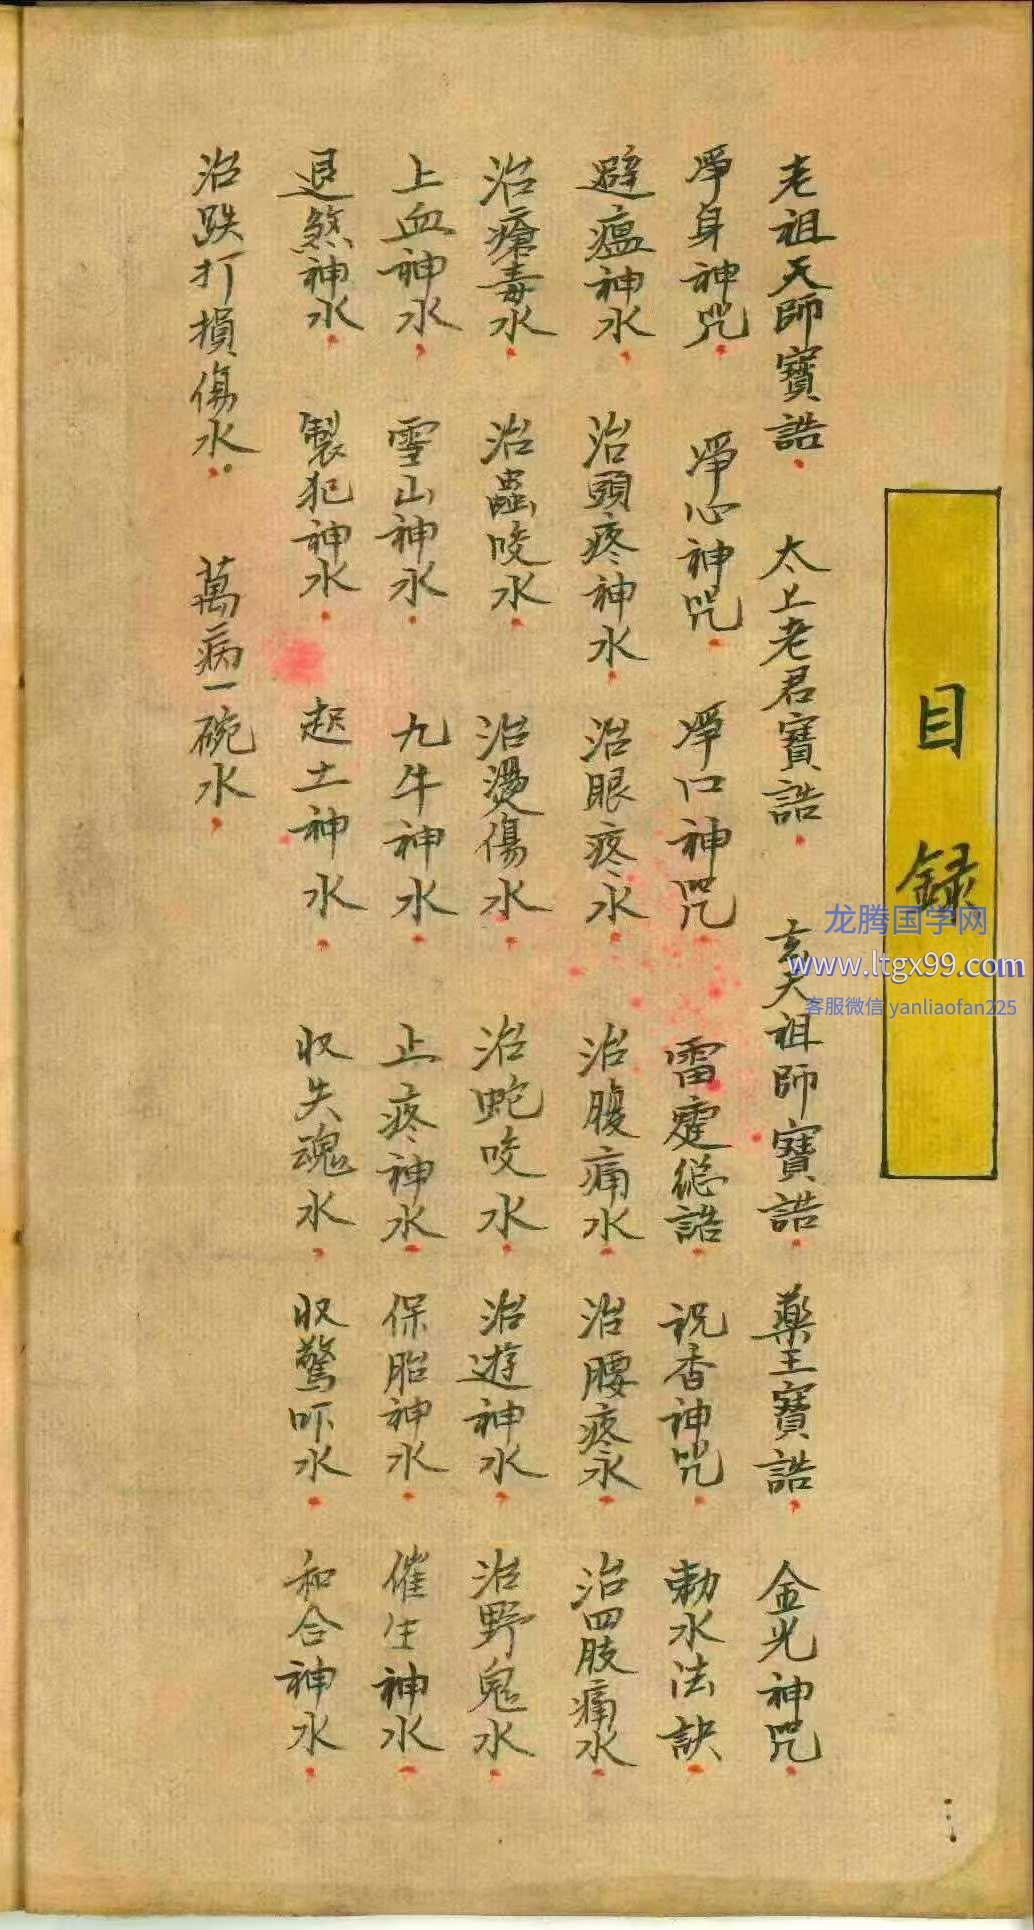 目録
老祖天師寶誥 太上老君寶誥 玄天祖師寶誥 藥王寶誥 金光神咒
淨身神咒 淨心神咒 淨口神咒 雷霆總誥 祝香神咒 勅水法訣
避瘟神水 治頭疼神水 治眼疼水 治腹痛水 治腰疼水 治四肢痛水
治瘡毒水 治蟲咬水 治燙傷水 治蛇咬水 治遊神水 治野鬼水
上血神水 雪山神水 九牛神水 止疼神水 保胎神水 催生神水
退煞神水 製犯神水 起土神水 收失魂水 收驚吓水 和合神水
治跌打損傷水 萬病一碗水
龙腾国学网
www.ltgx99.com
客服微信 yanliaofan225